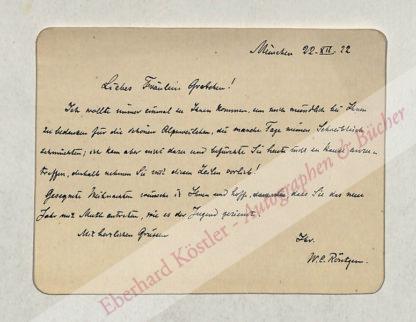 München 22. XII. 22
Liebes Fräulein Gretchen!
Ich wollte immer einmal zu Ihnen kommen, um mich mündlich bei Ihnen
zu bedanken für die schönen Alpenveilchen, die manche Tage meinen Schreibtisch
schmückten; ich kam aber nicht dazu und befürchte Sie heute nicht zu Hause anzu-
treffen, deshalb nehmen Sie mit diesen Zeilen vorlieb!
Gesegnete Weihnachten wünsche ich Ihnen und hoffe, dass Sie das neue
Jahr mit Muth antreten, wie es der Jugend geziemt!
Mit herzlichen Grüssen
Ihr
W. C. Röntgen.
Eberhard Köstler - Autographen & Bücher